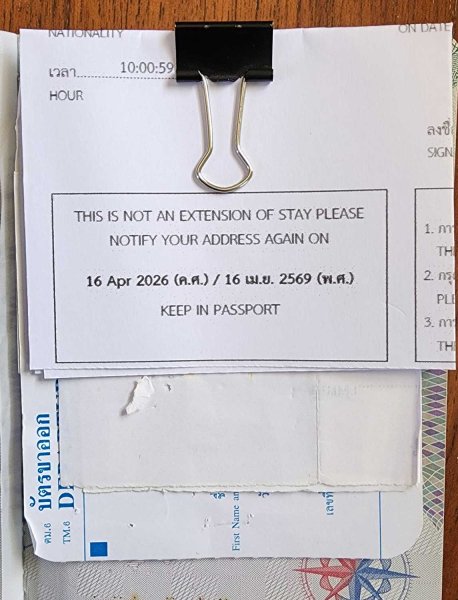 NATIONALITY
ON DATE
เวลา 10:00:59
HOUR
ลงชื่อ
SIGN
THIS IS NOT AN EXTENSION OF STAY PLEASE
NOTIFY YOUR ADDRESS AGAIN ON
16 Apr 2026 (ค.ศ.) / 16 เม.ย. 2569 (พ.ศ.)
KEEP IN PASSPORT
1. กา
TH
2. กรุ
PLE
3. กา
TH
ตม.6 บัตรขาออก
TM.6
First Name an
เลขที่